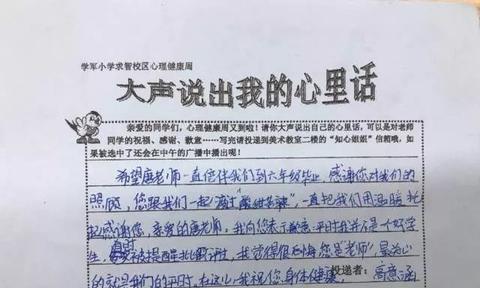 学军小学求智校区心理健康周
大声说出我的心里话
亲爱的同学们，心理健康周又到啦！请你大声说出自己的心里话，可以是对老师
同学的祝福、感谢、歉意……写完请投递到美术教室二楼的“知心姐姐”信箱哦，如
果被选中了还会在中午的广播中播出呢！
希望唐老师一直陪伴我们到六年级毕业，感谢你对我们的
照顾，您跟我们一起度过酸甜苦辣，一直把我们用温暖
起感谢您，亲爱的唐老师，我向您表示歉意，平时我并不是一个好学
生，被提醒 批评，我觉得很后悔您是老师，最关心
的就是我们的平时，在这儿我祝您身体健康，
投递者：高